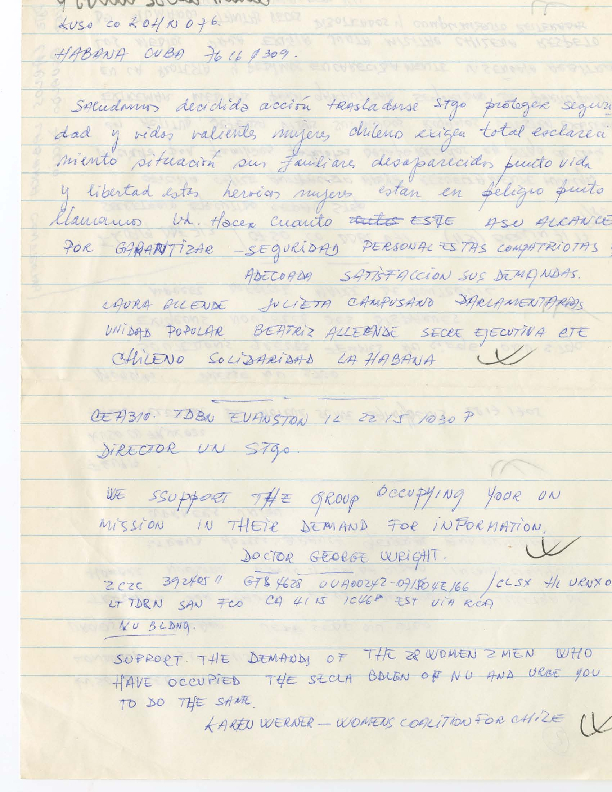 HABANA CUBA 76 16 1309.
Saludamos decidida acción trasladarse Stgo proteger seguri
dad y vidas valientes mujeres chileno exigen total esclareci
miento situación sus familiares desaparecidos punto vida
y libertad estas heroicas mujeres estan en peligro punto
llamamos Ud. Hacer cuanto ESTE ASU ALCANCE
POR GARANTIZAR - SEGURIDAD PERSONAL ESTAS COMPATRIOTAS
ADECUADA SATISFACCION SUS DEMANDAS.
LAURA ALLENDE JULIETA CAMPUSANO PARLAMENTARIAS
UNIDAD POPULAR BEATRIZ ALLEENDE SECRE EJECUTIVA CTE
CHILENO SOLIDARIDAD LA HABANA
CETA310. TDBN EVANSTON IL 22 15 1030 P
DIRECTOR UN STgo.
WE SSUPPORT THE GROUP OCCUPYING YOUR UN
MISSION IN THEIR DEMAND FOR INFORMATION.
DOCTOR GEORGE WRIGHT.
ZCZC GTB 4628 /CLSX
LT TDRN SAN FCO CA 41 15 EST VIA RCA
NU BLDNG.
SUPPORT THE DEMANDS OF THE 28 WOMEN 2 MEN WHO
HAVE OCCUPIED THE BDLEN OF NU AND URGE YOU
TO DO THE SAME.
KAREN WERNER - WOMENS COALITION FOR CHILE